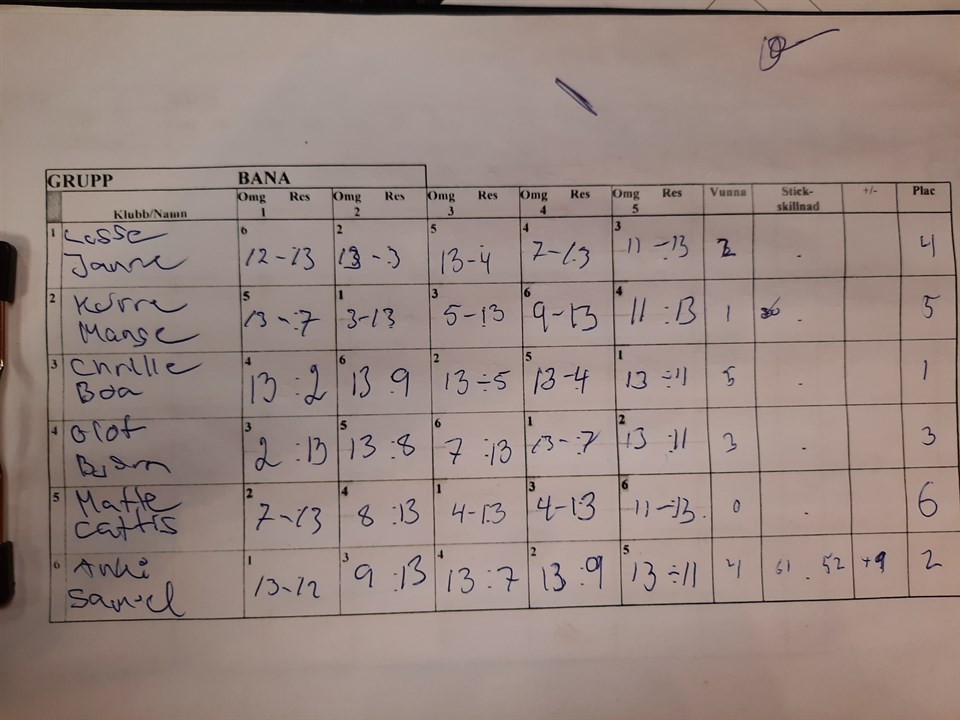 GRUPP BANA
Klubb/Namn Omg 1 Res Omg 2 Res Omg 3 Res Omg 4 Res Omg 5 Res Vunna Stick-skillnad +/- Plac
1 Lasse 6 2 5 4 3
Janne 12-13 13-3 13-4 7-13 11-13 2 . 4
2 5 1 3 6 4
Mange 13-7 3-13 5-13 9-13 11:13 1 . 5
3 Chrille 4 6 2 5 1
Boa 13:2 13 9 13÷5 13-4 13÷11 5 . 1
4 Olof 3 5 6 1 2
Björn 2:13 13:8 7:13 13-7 13:11 3 . 3
5 Matte 2 4 1 3 6
Cattis 7-13 8:13 4-13 4-13 11-13. 0 . 6
6 Anki 1 3 4 2 5
Samuel 13-12 9:13 13:7 13:9 13÷11 4 61 . 52 +9 2